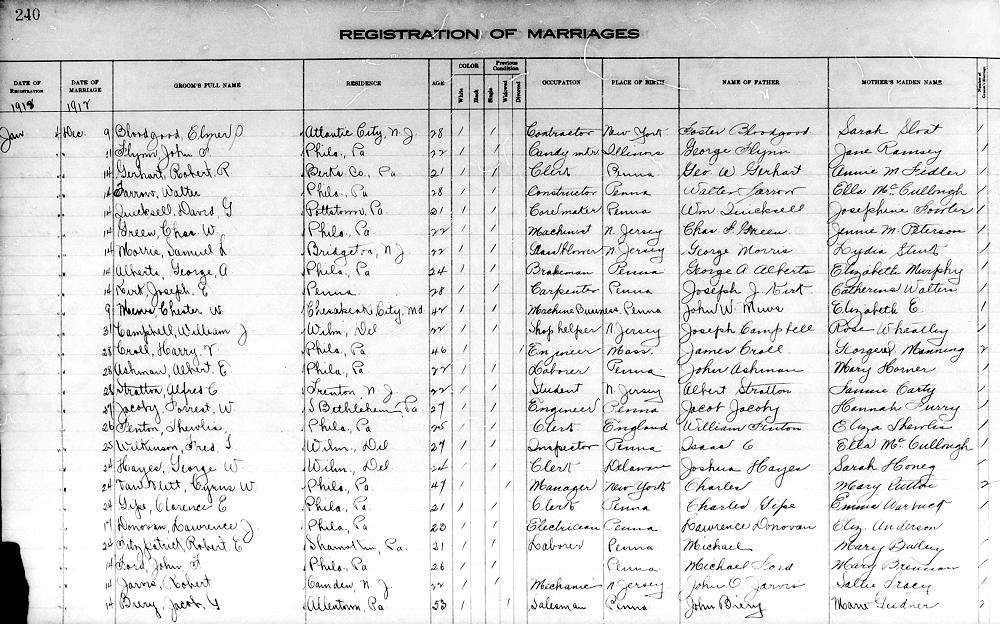 240
REGISTRATION OF MARRIAGES
DATE OF REGISTRATION DATE OF MARRIAGE GROOM'S FULL NAME RESIDENCE AGE COLOR White Black Previous Condition Single Widowed Divorced OCCUPATION PLACE OF BIRTH NAME OF FATHER MOTHER'S MAIDEN NAME Number of Groom's Marriage
1918 1917
Jan 4 Dec. 9 Bloodgood, Elmer Atlantic City, N.J 28 1 1 Contractor New York Foster Bloodgood Sarah Sloat 1
" " 11 Flynn John Phila., Pa 22 1 1 Candy mkr Illinois George Flynn Jane Ramsey 1
" " 14 Gerhart, Robert R Berks Co., Pa 21 1 1 Clerk Penna Geo. W Gerhart Annie M. Fidler 1
" " 14 Farrow, Walter Phila., Pa 28 1 1 Constructor Penna Walter Farrow Ella McCullough 1
" " 14 Quicksell, David G Pottstown, Pa 21 1 1 Core maker Penna Wm Quicksell Josephine Fowler 1
" " 14 Green, Chas. W. Phila., Pa 22 1 1 Machinist N. Jersey Chas F Green Jennie M. Peterson 1
" " 14 Morris, Samuel L Bridgeton, N J 22 1 1 Glassblower N. Jersey George Morris Lydia 1
" " 14 Alberts, George, A Phila, Pa 24 1 1 Brakeman Penna George A Alberts Elizabeth Murphy 1
" " 14 Kirk Joseph, E Penna 28 1 1 Carpenter Penna Joseph J. Kirk Catherine Walters 1
" " 9 Mews, Chester W. Chesapeake City, Md 42 1 1 Machine Business Penna John W. Mews Elizabeth E. 1
" " 3 Campbell, William J. Wilm, Del 22 1 1 Shop helper N Jersey Joseph Campbell Rose Wheatley 1
" " 28 Croll, Harry, V Phila, Pa 46 1 1 Engineer Mass. James Croll Manning 2
" " 28 Ashman, Albert. E Phila., Pa 22 1 1 Laborer Penna John Ashman Mary Horner 1
" " 28 Stratton, Alfred C Trenton, N. J 22 1 1 Student N. Jersey Albert Stratton Fannie Carty 1
" " 27 Jacoby, Forrest, W S Bethlehem, Pa 27 1 1 Engineer Penna Jacob Jacoby Hannah Furry 1
" " 26 Fenton, Shewlis Phila., Pa 25 1 1 Clerk England William Fenton Eliza Shewlis 1
" " 25 Wilkinson, Fred, Wilm, Del 27 1 1 Inspector Penna Isaac C Ella McCullough 1
" " 24 Hayes, George W. Wilm., Del. 24 1 1 Clerk Delaware Joshua Hayes Sarah Honeg 1
" " 24 Van Vlitt, Cyrus W. Phila., Pa 47 1 1 Manager New York Charles Mary Sutton 2
" " 24 Gipe, Clarence E Phila., Pa. 21 1 1 Clerk Penna Charles Gipe Emma 1
" " 17 Donovan, Lawrence J Phila., Pa 23 1 1 Electrician Penna Lawrence Donovan Eliz. Anderson 1
" " 24 Fitzpatrick Robert. E Shamokin, Pa. 21 1 1 Laborer Penna Michael Mary Bailey 1
" " 14 Ford, John, F Phila, Pa 26 1 1 Penna Michael Ford Mary Brennan 1
" " 14 Jarvis, Robert Camden, N. J 22 1 1 Mechanic N. Jersey John O. Jarvis Sallie Tracy 1
" " 14 Biery, Jacob, Y Allentown, Pa 53 1 1 Salesman Penna John Biery Marie 2